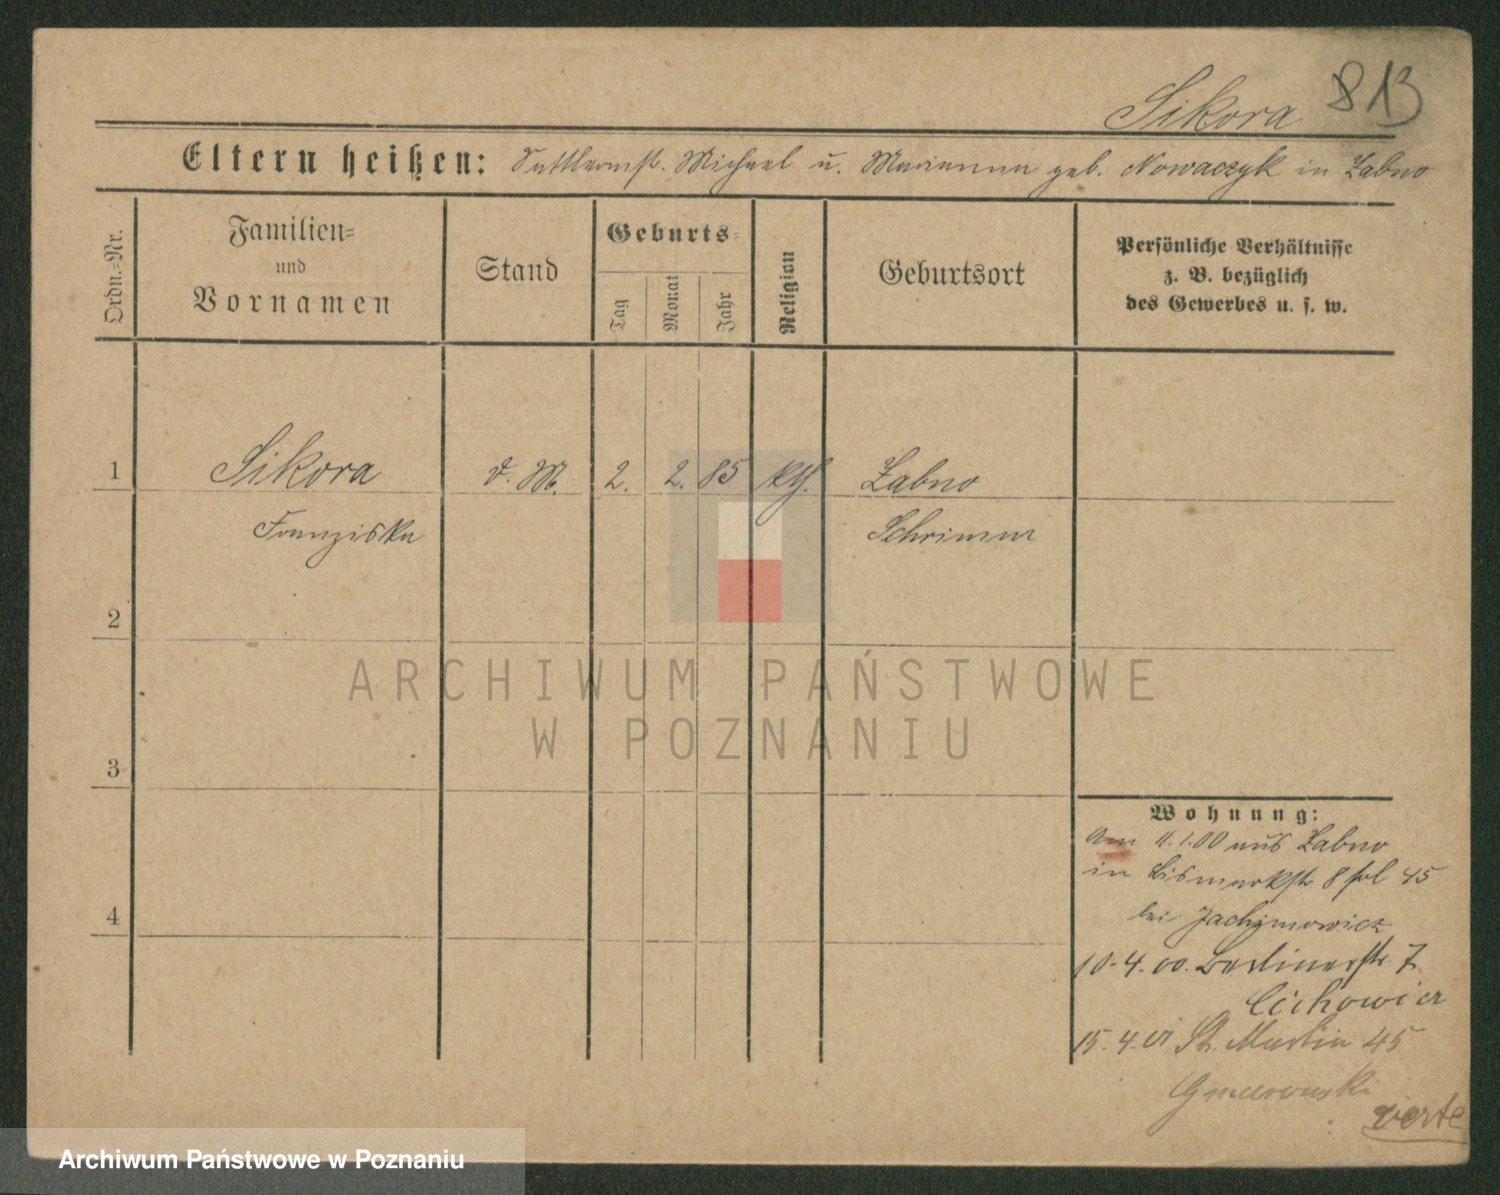 Sikora 813
Eltern heißen: Sattlermstr. Michael u. Marianna geb. Nowaczyk in Zabno
Ordn.-Nr.
Familien-
und
Vornamen
Stand
Geburts-
Tag
Monat
Jahr
Religion
Geburtsort
Persönliche Verhältnisse
z. B. bezüglich
des Gewerbes u. s. w.
1 Sikora d. M. 2. 2. 85 kth. Zabno
Franziska Schrimm
2
3
4
ARCHIWUM PAŃSTWOWE
W POZNANIU
Wohnung:
Am 11.1.00 aus Zabno
in Bismarkstr 8 45
bei Jachymowicz
10.4.00. Berlinerstr. 7
Cichowicz
15.4.01 St. Martin 45
verte
Archiwum Państwowe w Poznaniu